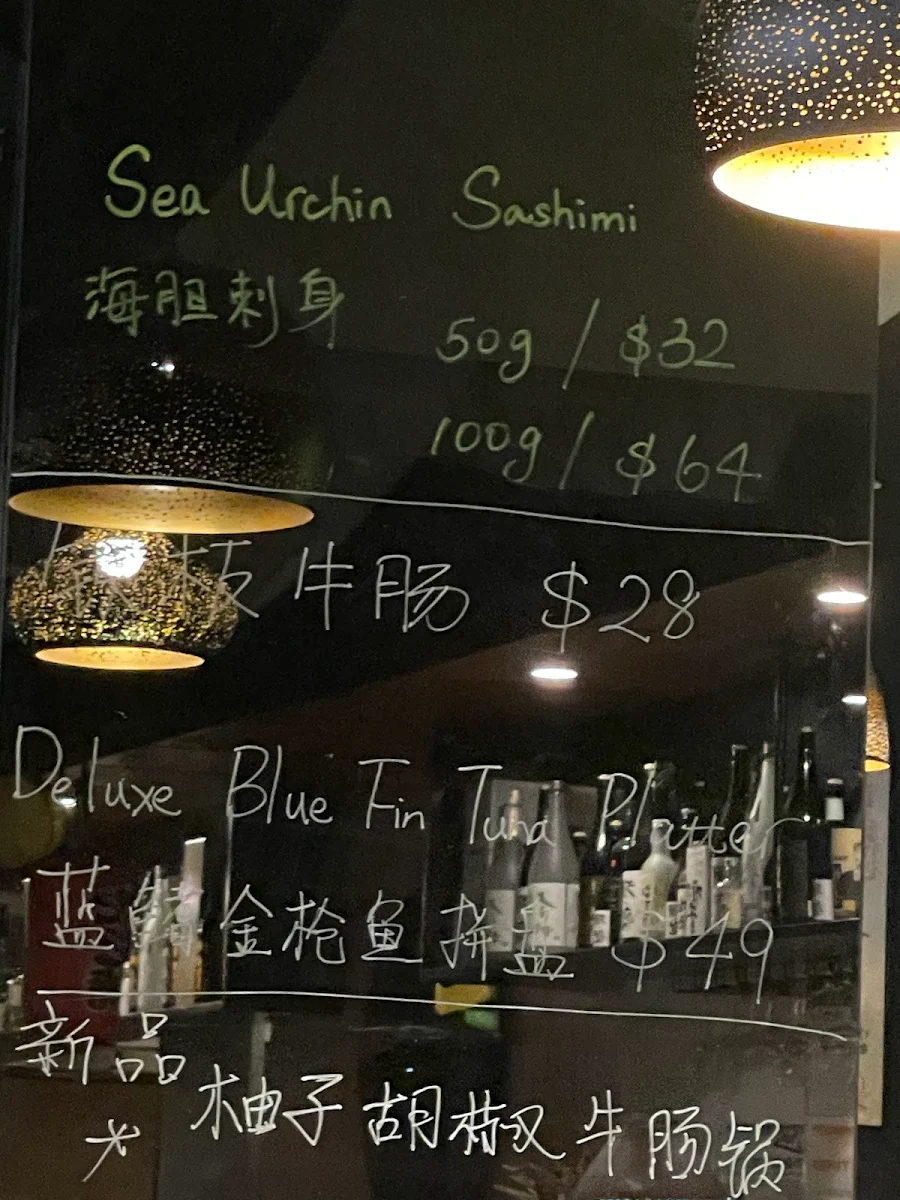 Sea Urchin Sashimi
海胆刺身
50g / $32
100g / $64
枝牛肠 $28
Deluxe Blue Fin Tuna Platter
蓝鳍金枪鱼拼盘 $49
新品
柚子胡椒牛肠锅